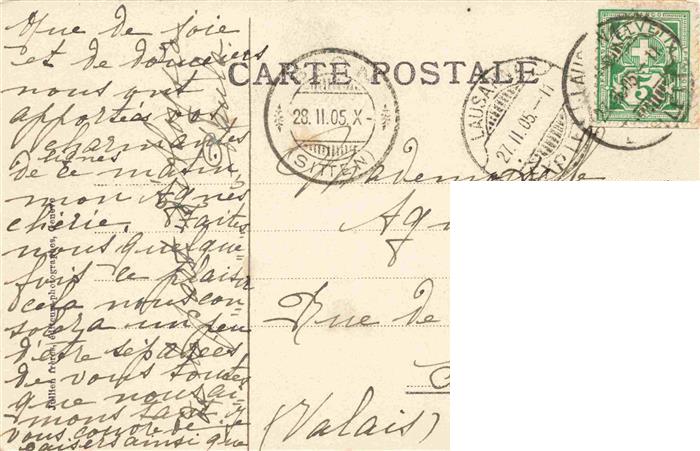 Que de joie
et de douceurs
nous ont
apportées vos
charmantes
lignes
de ce matin,
mon Agnès
chérie. Faites
nous quelque-
fois ce plaisir
cela nous con-
solera un peu
d'être séparées
de vous toutes
que nous ai-
mons tant. Je
vous couvre de
baisers ainsi que
Jullien frères, éditeurs photographes, Genève
CARTE POSTALE
28.II.05.X-
(SITTEN)
LAUSA
27.II.05.-11
HELVETIA
5
Mademoiselle
Agn
Rue de
(Valais)